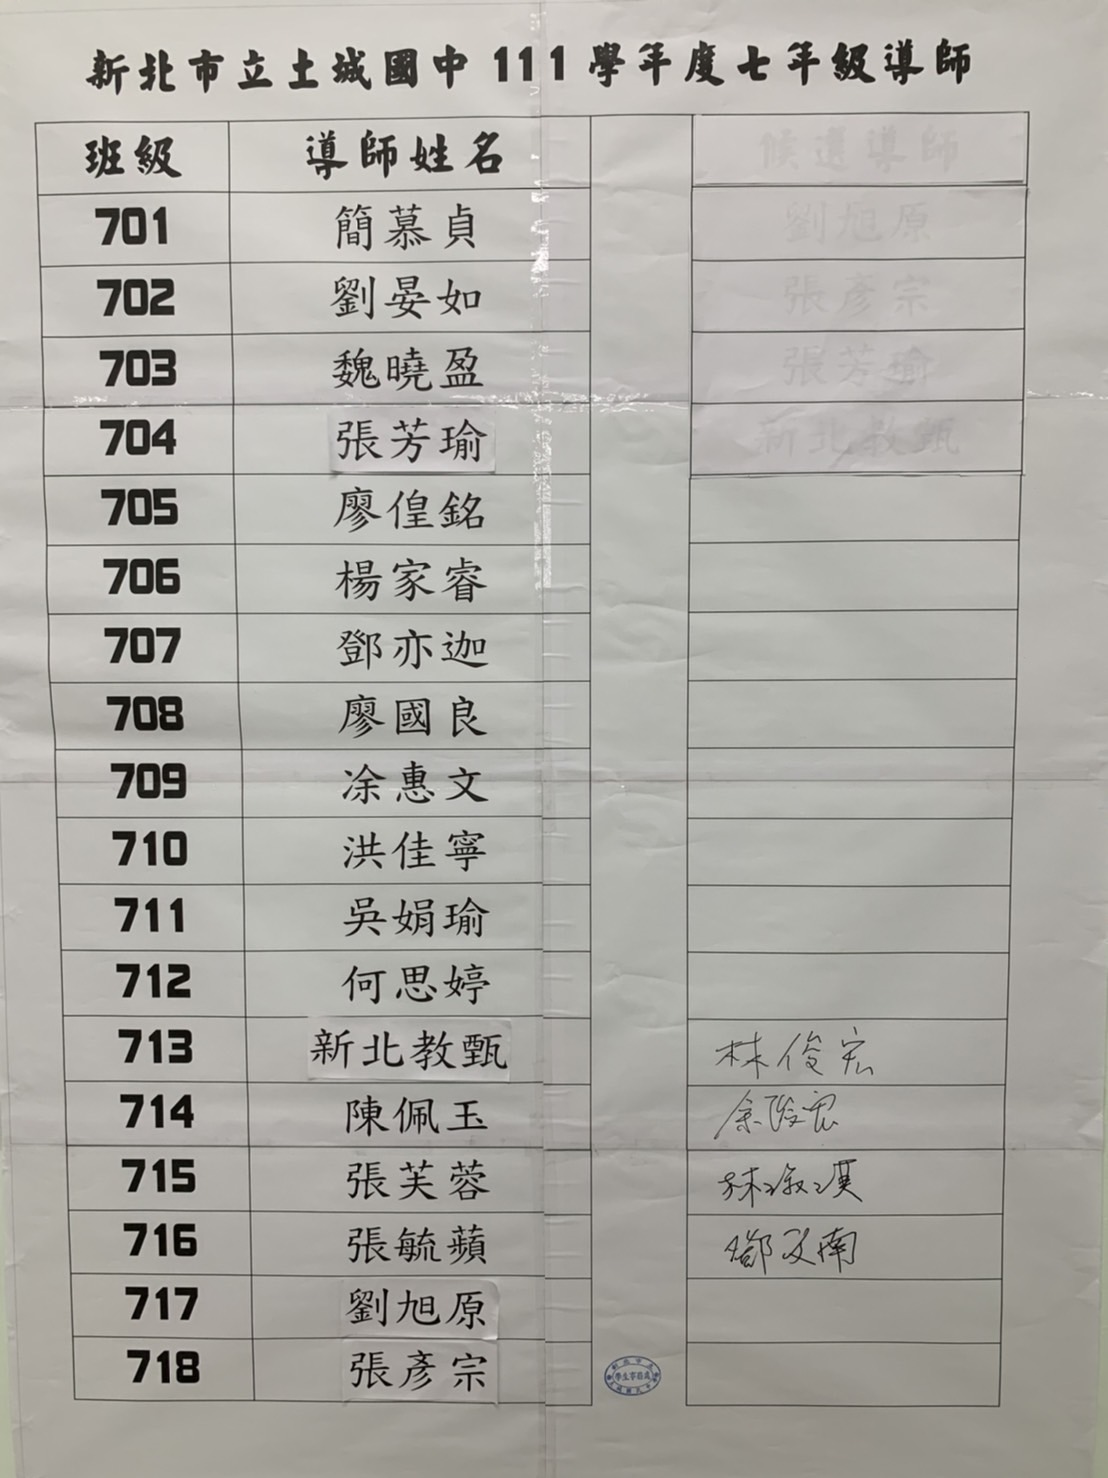 新北市立土城國中111學年度七年級導師
班級 導師姓名 候選導師
701 簡慕貞 劉旭原
702 劉晏如 張彥宗
703 魏曉盈 張芳瑜
704 張芳瑜 新北教甄
705 廖偟銘
706 楊家睿
707 鄧亦迦
708 廖國良
709 凃惠文
710 洪佳寧
711 吳娟瑜
712 何思婷
713 新北教甄 林俊宏
714 陳佩玉
715 張芙蓉
716 張毓蘋
717 劉旭原
718 張彥宗